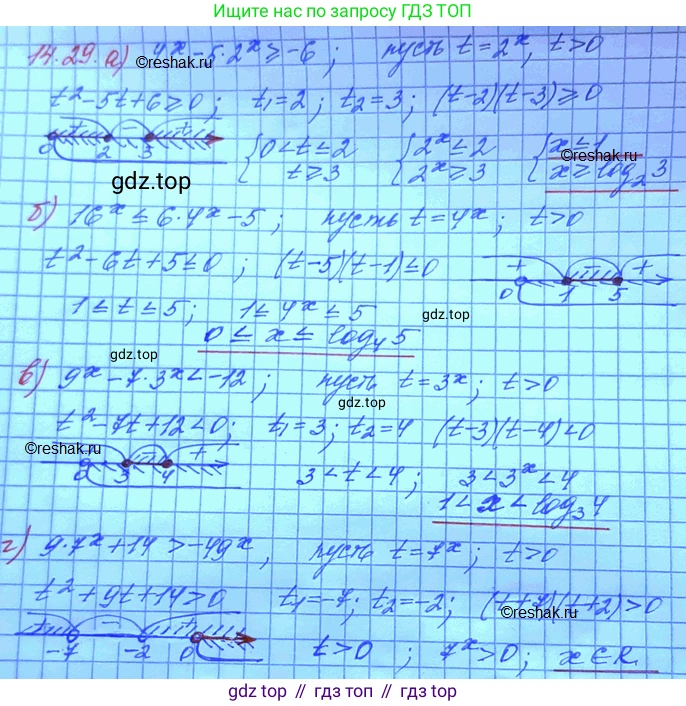 Ищите нас по запросу ГДЗ ТОП
14.29. а) 4^x - 5·2^x ≥ -6; пусть t = 2^x, t > 0
©reshak.ru
t² - 5t + 6 ≥ 0; t₁ = 2; t₂ = 3; (t-2)(t-3) ≥ 0
+ - +
0 2 3
{ 0 < t ≤ 2 { 2^x ≤ 2 { x ≤ 1
t ≥ 3 2^x ≥ 3 x ≥ log₂ 3
©reshak.ru
gdz.top
б) 16^x ≤ 6·4^x - 5; пусть t = 4^x; t > 0
t² - 6t + 5 ≤ 0; (t-5)(t-1) ≤ 0
+ - +
0 1 5
1 ≤ t ≤ 5; 1 ≤ 4^x ≤ 5
gdz.top
0 ≤ x ≤ log₄ 5
gdz.top
в) 9^x - 7·3^x < -12; пусть t = 3^x; t > 0
gdz.top
t² - 7t + 12 < 0; t₁ = 3; t₂ = 4 (t-3)(t-4) < 0
©reshak.ru
- +
0 3 4
3 < t < 4; 3 < 3^x < 4
1 < x < log₃ 4
г) 9·7^x + 14 > -49^x, пусть t = 7^x; t > 0
t² + 9t + 14 > 0 t₁ = -7; t₂ = -2; (t+7)(t+2) > 0
©reshak.ru
+ - +
-7 -2 0
t > 0; 7^x > 0; x ∈ R
gdz top // гдз топ // gdz.top